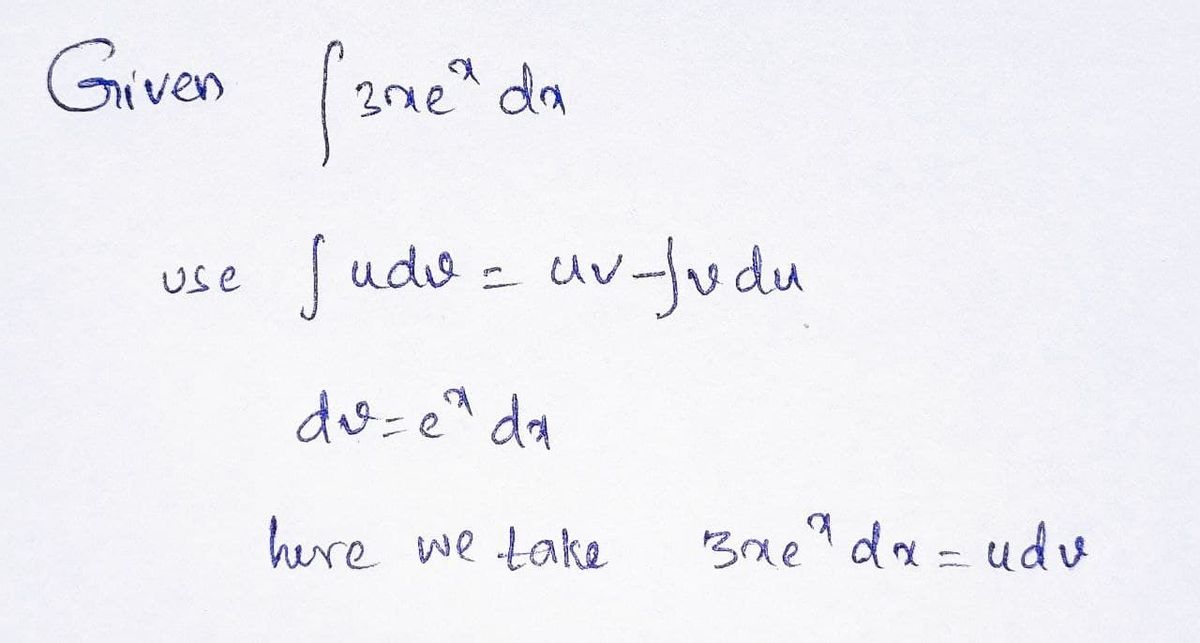 Given ∫3xeˣ dx
use ∫udv = uv-∫vdu
dv=eˣ dx
here we take 3xeˣdx=udv